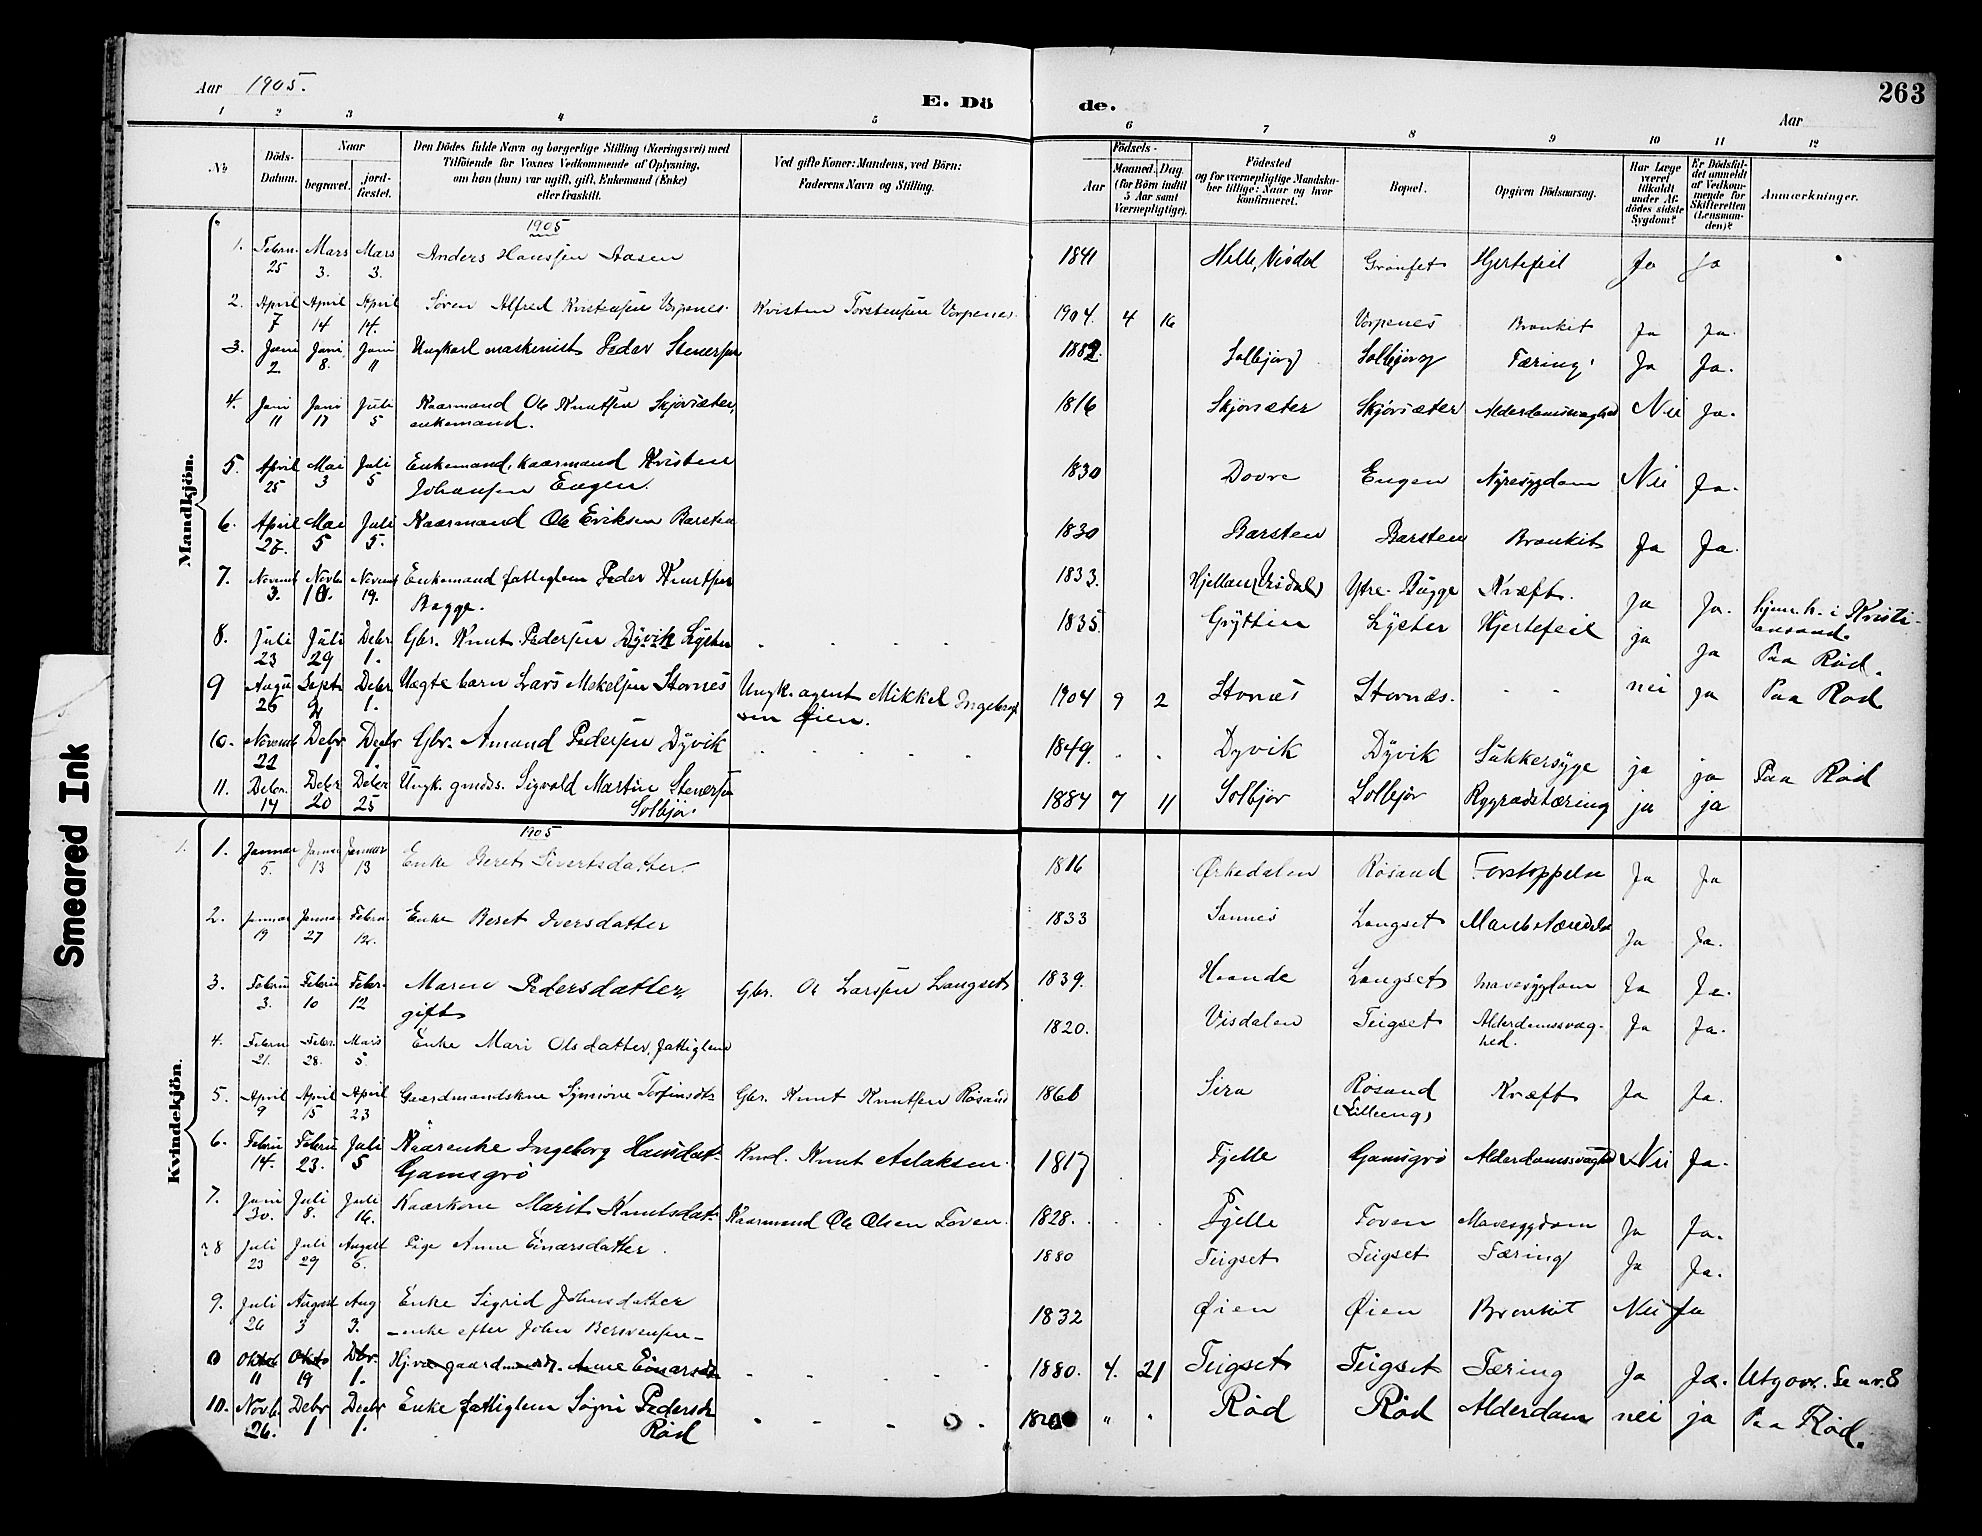 263
Aar 1905.
E. Dö de.
Aar
1 2 3 4 5 6 7 8 9 10 11 12
No
Döds-Datum.
Naar
begravet.
jord-fæstet.
Den Dödes fulde Navn og borgerlige Stilling (Næringsvei) med
Tilföiende for Voxnes Vedkommende af Oplysning,
om han (hun) var ugift, gift, Enkemand (Enke)
eller fraskilt.
Ved gifte Koner: Mandens, ved Börn:
Faderens Navn og Stilling.
Födsels-
Aar
Maaned. Dag.
(for Börn indtil
5 Aar samt
Værnepligtige).
Födested
og for værnepligtige Mandsku-
ber tillige: Naar og hvor
konfirmeret.
Bopæl.
Opgiven Dödsaarsag.
Har Læge
været
tilkaldt
under Af-
dödes sidste
Sygdom?
Er Dödsfal-
det anmeldt
af Vedkom-
mende for
Skifteretten
(Lensman-
den)?
Anmærkninger.
Mandkjön.
1905
1. Febru. 25 Mars 3. Mars 3. Anders Hanssen Aasen 1841 Hille, Visdal Grønset Hjertefeil Ja Ja
2. April 7 April 14 April 14. Søren Alfred Kristensen Vorpenes. Kristen Torstensen Vorpenes. 1904. 4 16 Vorpenes Bronkit Ja Ja.
3. Juni 2 Juni 8. Juni 11 Ungkarl maskenist Peder Stenersen 1882. Solbjørg Solbjørg Tæring. Ja Ja.
4. Juni 11 Juni 17 Juli 5 Kaarmand Ole Knutsen Skjørsæter,
enkemand. 1816 Skjørsæter Skjørsæter Alderdomssvaghed Nei Ja.
5. April 25 Mai 3 Juli 5 Enkemand, kaarmand Kristen
Johansen Engen. 1830 Dovre Engen Nyresygdom Nei Ja.
6. April 27. Mai 5 Juli 5. Kaarmand Ole Eriksen Barsten 1830 Barsten Barsten Bronkit Ja Ja.
7. Novemb 3. Novbr 10. Novemb 19. Enkemand fattiglem Peder Knutsen
Bugge. 1833. Hjellan (Visdal) Ytre-Bugge Kræft. Ja Ja. hjem. h. i Kristi-
ansund.
8. Juli 23 Juli 29 Debr 1. Gbr. Knut Pedersen Dyvik Lyster 1835. Gryttin Lyster Hjertefeil ja ja Paa Rød.
9 Augu 26 Septr 2 Debr 1. Uægte barn Lars Mekelsen Stornes Ungk. agent Mikkel Ingebrigt
sen Øien. 1904 9 2 Stornæs Stornæs. - - nei ja Paa Rød
10. Novemb 22 Debr 1 Decbr 1 Gbr. Amund Pedersen Dyvik 1849. Dyvik Dyvik Sukkersyge ja ja Paa Rød
11. Debr. 14 Debr 20 Debr 25 Ungk. gmds. Sigvald Martin Stenersen
Solbjør. 1884 7 11 Solbjør Solbjør Rygradstæring ja ja
Kvindekjön.
1905
1. Januar 5. Januar 13 Januar 13 Enke Beret Sivertsdatter. 1816 Ørkedalen Røsand Forstoppelse Ja Ja
2. Januar 19 Januar 27 Febru 12. Enke Beret Iversdatter 1833 Sannes Langset Ja Ja.
3. Febru 3. Febru 10 Febr. 12 Maren Pedersdatter,
gift Gbr. Ole Larssen Langset 1839. Haande Langset Mavesygdom Ja Ja.
4. Febru 21. Febr. 28. Mars 5. Enke Mari Olsdatter, fattiglem 1820. Visdalen Teigset Alderdomssvag-
hed. Ja Ja.
5. April 9 April 15 April 23 Gaardmandskone Synnøve Torfinsdtr Gbr. Knut Knutsen Røsand 1861 Sira Røsand
(Lilleeng) Kræft Ja Ja.
6. Febru 14. Febru 23. Juli 5 Kaarenke Ingeborg Hansdat-
Gamsgrø Kmd. Knut Aslaksen. 1817 Fjelle Gamsgrø Alderdomssvaghed Nei Ja.
7. Juni 30. Juli 8. Juli 16. Kaarkone Marit Knutsdat- Kaarmand Ole Olsen Toven. 1828. Fjelle Toven Mavesygdom Ja Ja.
8 Juli 23 Juli 29 August 6. Pige Anne Einarsdatter. 1880 Teigset Teigset Tæring Ja Ja.
9. Juli 26 August 3 Aug 3. Enke Sigrid Johnsdatter
- enke efter John Bersvensen - 1832 Øien Øien Bronkit Nei Ja
Oktob 11 Okto 19 Dbr. 1. Hjv. gaardmandsd. Anne Einarsdtr 1880. 4. 21 Teigset Teigset Tæring Ja Ja. Utgaar. Se nr. 8
10. Novb 26. Debr 1 Decbr 1. Enke fattiglem Signi Pedersdr
Rød Rød Rød Alderdom nei ja Paa Rød.
Smeared Ink